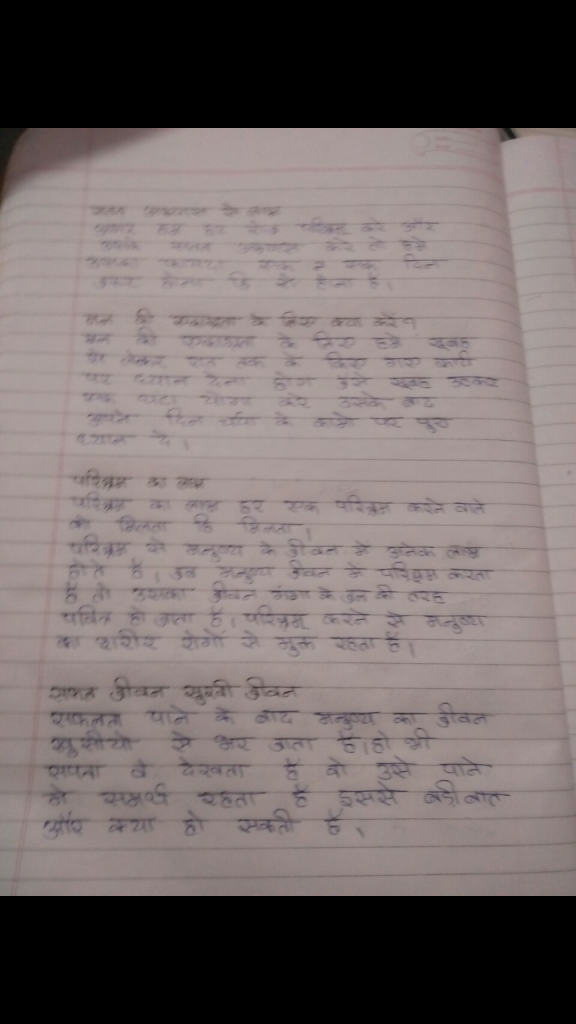 सतत अभ्यास के लाभ
अगर हम हर रोज परिश्रम करे और
उसके सतत अभ्यास करे तो हमे
उसका फायदा एक न एक दिन
होना कि है होना है।
मन की एकाग्रता के लिए क्या करें?
मन की एकाग्रता के लिए हमे सुबह
से लेकर रात तक के किए गए कार्यो
पर ध्यान देना होगा उसे सुबह उठकर
एक घंटा योगा करे उसके बाद
अपने दिन चर्या के कामो पर पुरा
ध्यान दे।
परिश्रम का लाभ
परिश्रम का लाभ हर एक परिश्रम करने वाले
को मिलता कि मिलता।
परिश्रम से मनुष्य के जीवन में अनेक लाभ
होते है, जब मनुष्य जीवन में परिश्रम करता
है तो उसका जीवन गंगा के जल की तरह
पवित्र हो जाता है। परिश्रम करने से मनुष्य
का शरीर रोगों से मुक्त रहता है।
सफल जीवन सुखी जीवन
सफलता पाने के बाद मनुष्य का जीवन
खुसीयो से भर जाता है। हो भी
सपना वे देखता है वो उसे पाने
में समर्थ रहता है इससे बड़ी बात
और क्या हो सकती है।